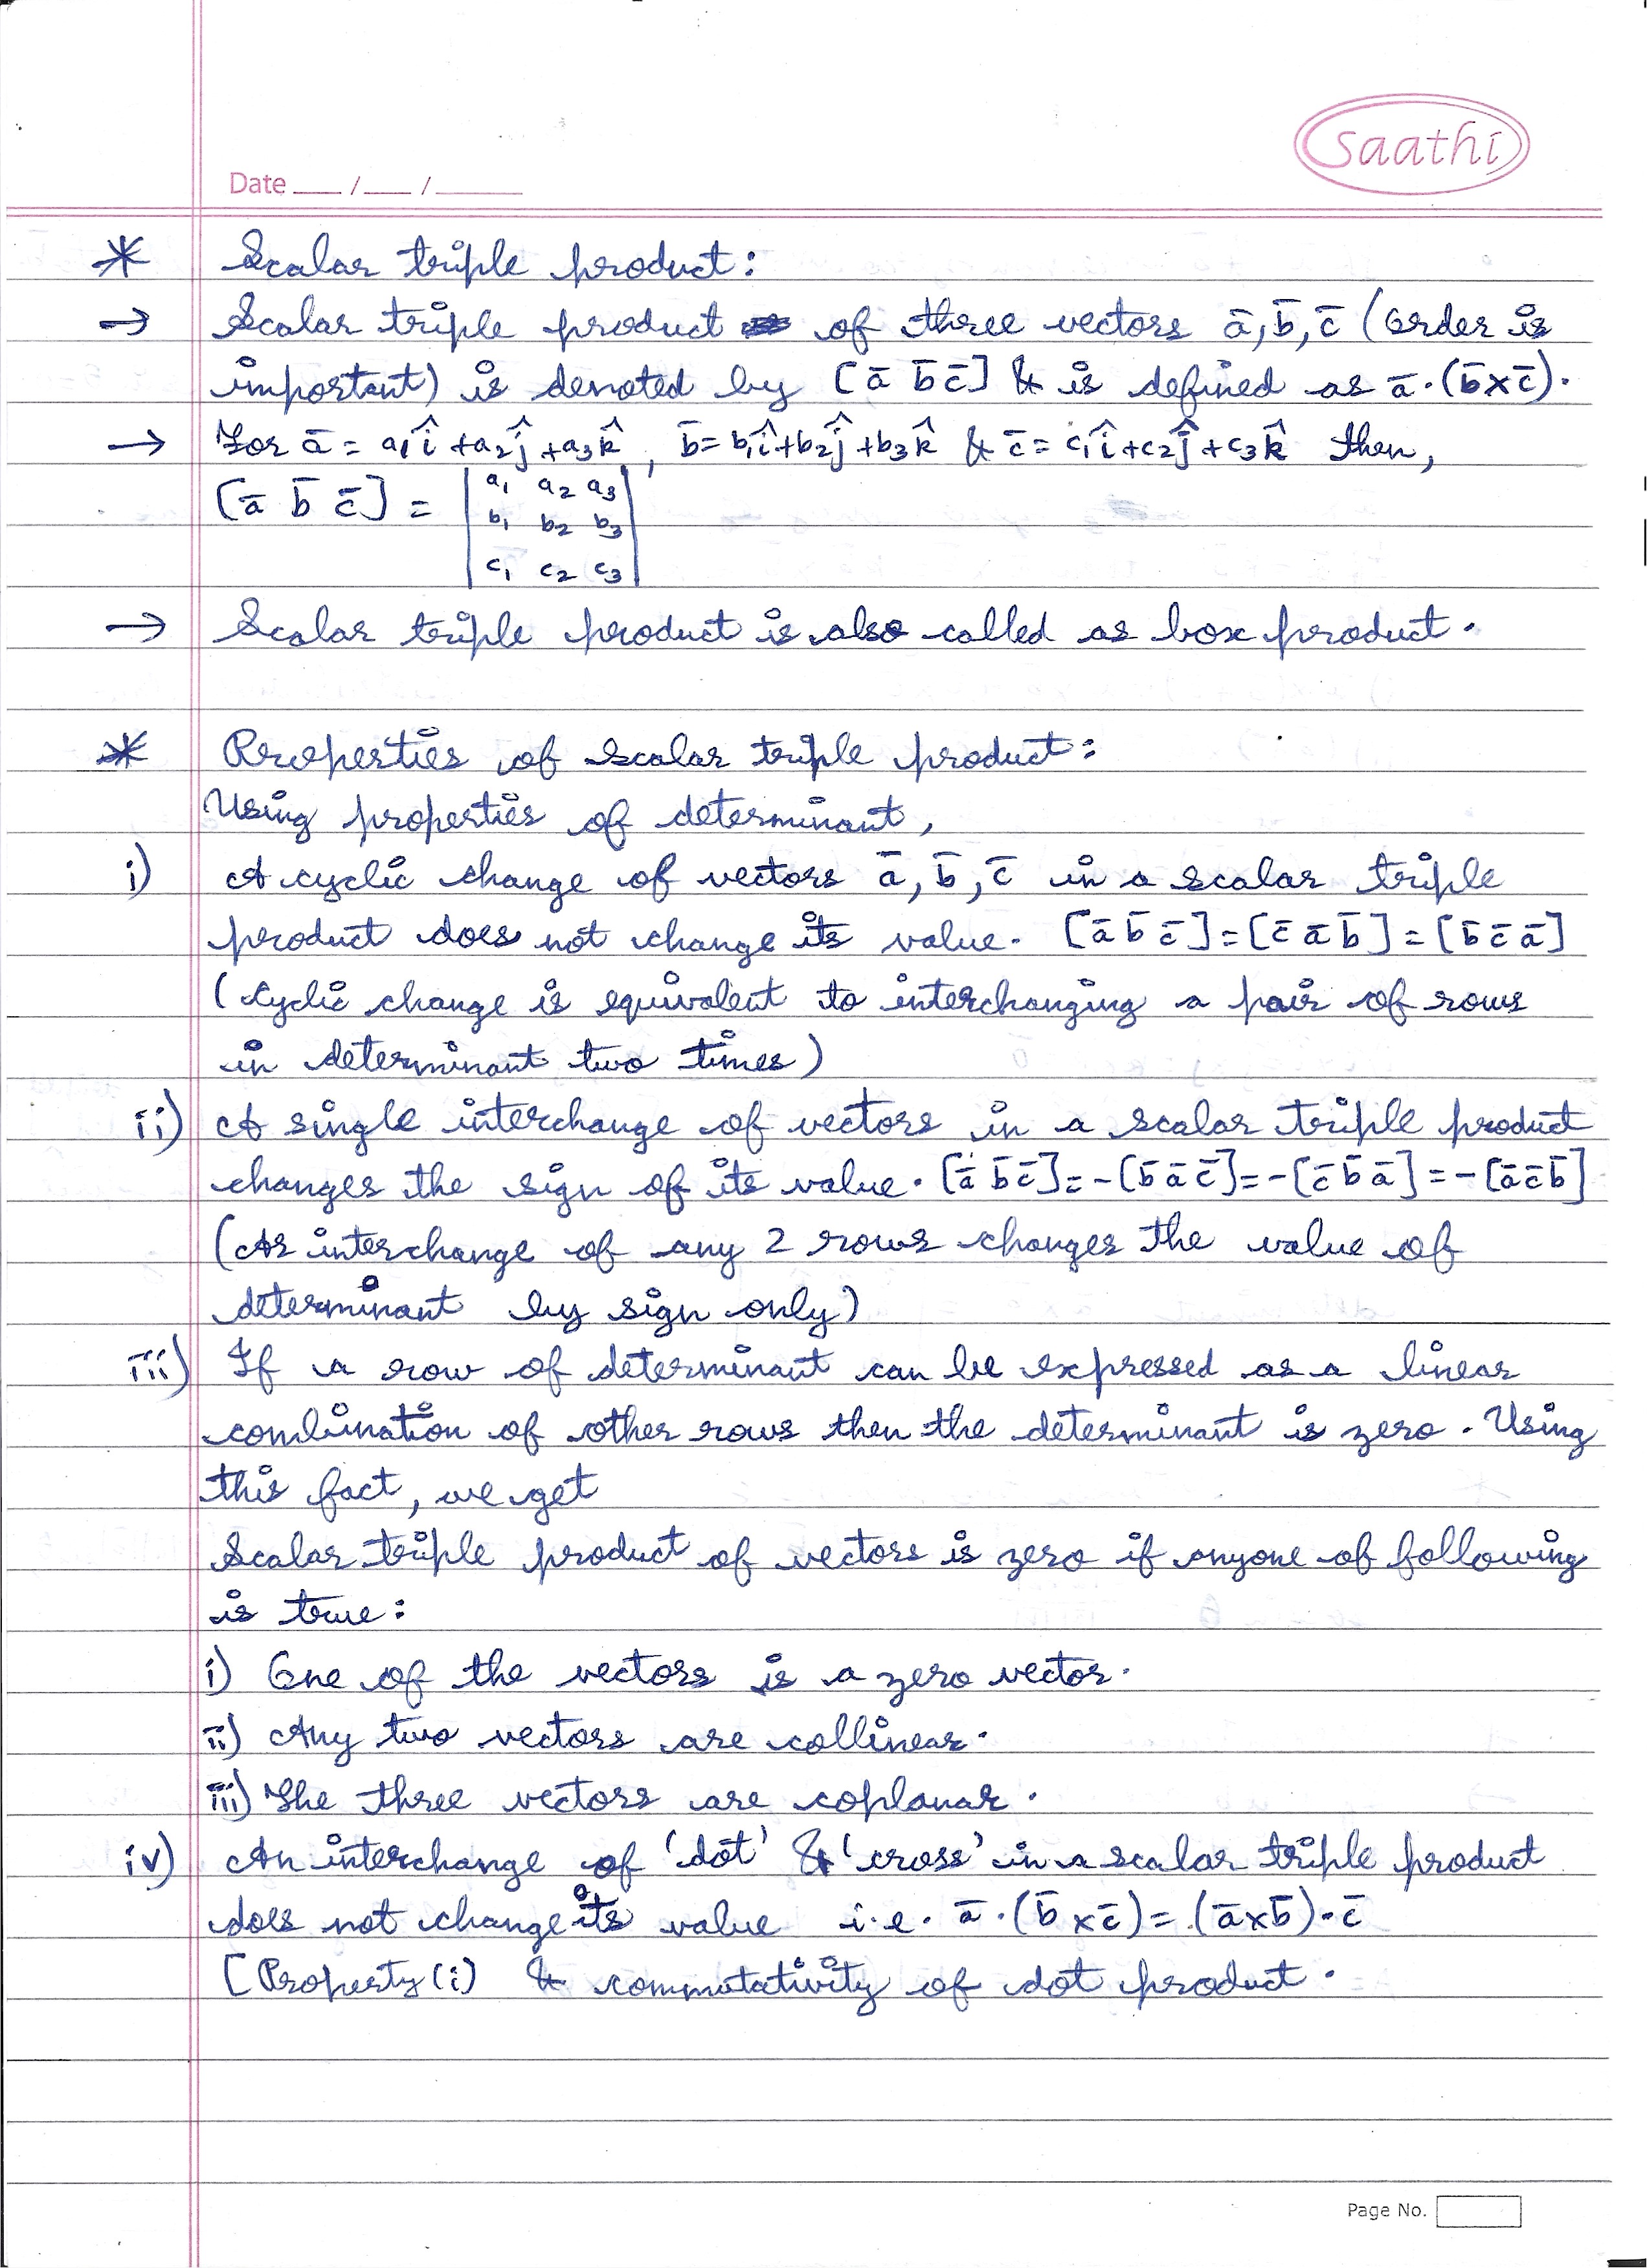 saathi
Date ___ / ___ / ______
* Scalar triple product:
→ Scalar triple product of three vectors ā, b̄, c̄ (Order is
important) is denoted by [ā b̄ c̄] & is defined as ā·(b̄×c̄).
→ For ā = a₁î + a₂ĵ + a₃k̂, b̄ = b₁î + b₂ĵ + b₃k̂ & c̄ = c₁î + c₂ĵ + c₃k̂ then,
[ā b̄ c̄] = | a₁ a₂ a₃ |
| b₁ b₂ b₃ |
| c₁ c₂ c₃ |
→ Scalar triple product is also called as box product.
* Properties of scalar triple product:
Using properties of determinant,
i) A cyclic change of vectors ā, b̄, c̄ in a scalar triple
product does not change its value. [ā b̄ c̄] = [c̄ ā b̄] = [b̄ c̄ ā]
(Cyclic change is equivalent to interchanging a pair of rows
in determinant two times)
ii) A single interchange of vectors in a scalar triple product
changes the sign of its value. [ā b̄ c̄] = -[b̄ ā c̄] = -[c̄ b̄ ā] = -[ā c̄ b̄]
(As interchange of any 2 rows changes the value of
determinant by sign only)
iii) If a row of determinant can be expressed as a linear
combination of other rows then the determinant is zero. Using
this fact, we get
Scalar triple product of vectors is zero if anyone of following
is true:
i) One of the vectors is a zero vector.
ii) Any two vectors are collinear.
iii) The three vectors are coplanar.
iv) An interchange of 'dot' & 'cross' in a scalar triple product
does not change its value i.e. ā·(b̄×c̄) = (ā×b̄)·c̄
[Property (i) & commutativity of dot product.
Page No.